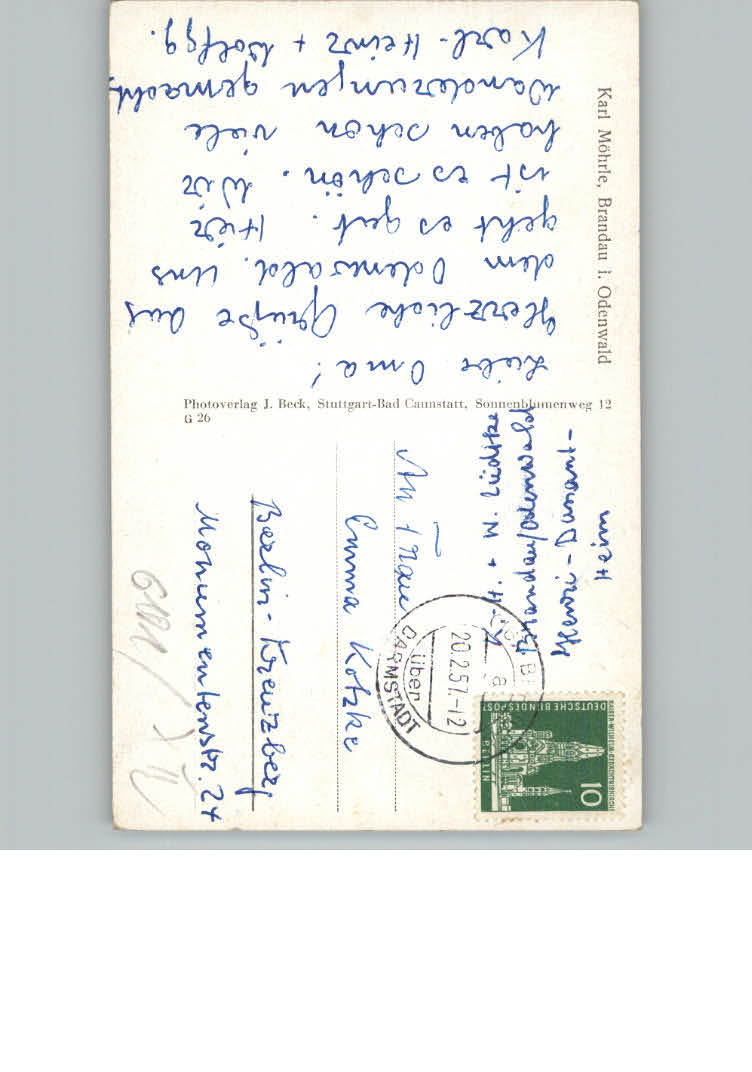 Karl Möhrle, Brandau i. Odenwald
Liebe Oma!
Herzliche Grüße aus
dem Odenwald. Uns
geht es gut. Hier
ist es schön. Wir
haben schon viele
Wanderungen gemacht.
Karl-Heinz + Wolfgg.
Photoverlag J. Beck, Stuttgart-Bad Cannstatt, Sonnenblumenweg 12
G 26
K.-H. + W. Lüdtke
Brandau/Odenwald
Henri-Dunant-
Heim
An Frau
Emma Kotzke
Berlin-Kreuzberg
Monumentenstr. 24
20.2.57.-12
a
über
DARMSTADT
DEUTSCHE BUNDESPOST
BERLIN
KAISER-WILHELM-GEDÄCHTNISKIRCHE
10